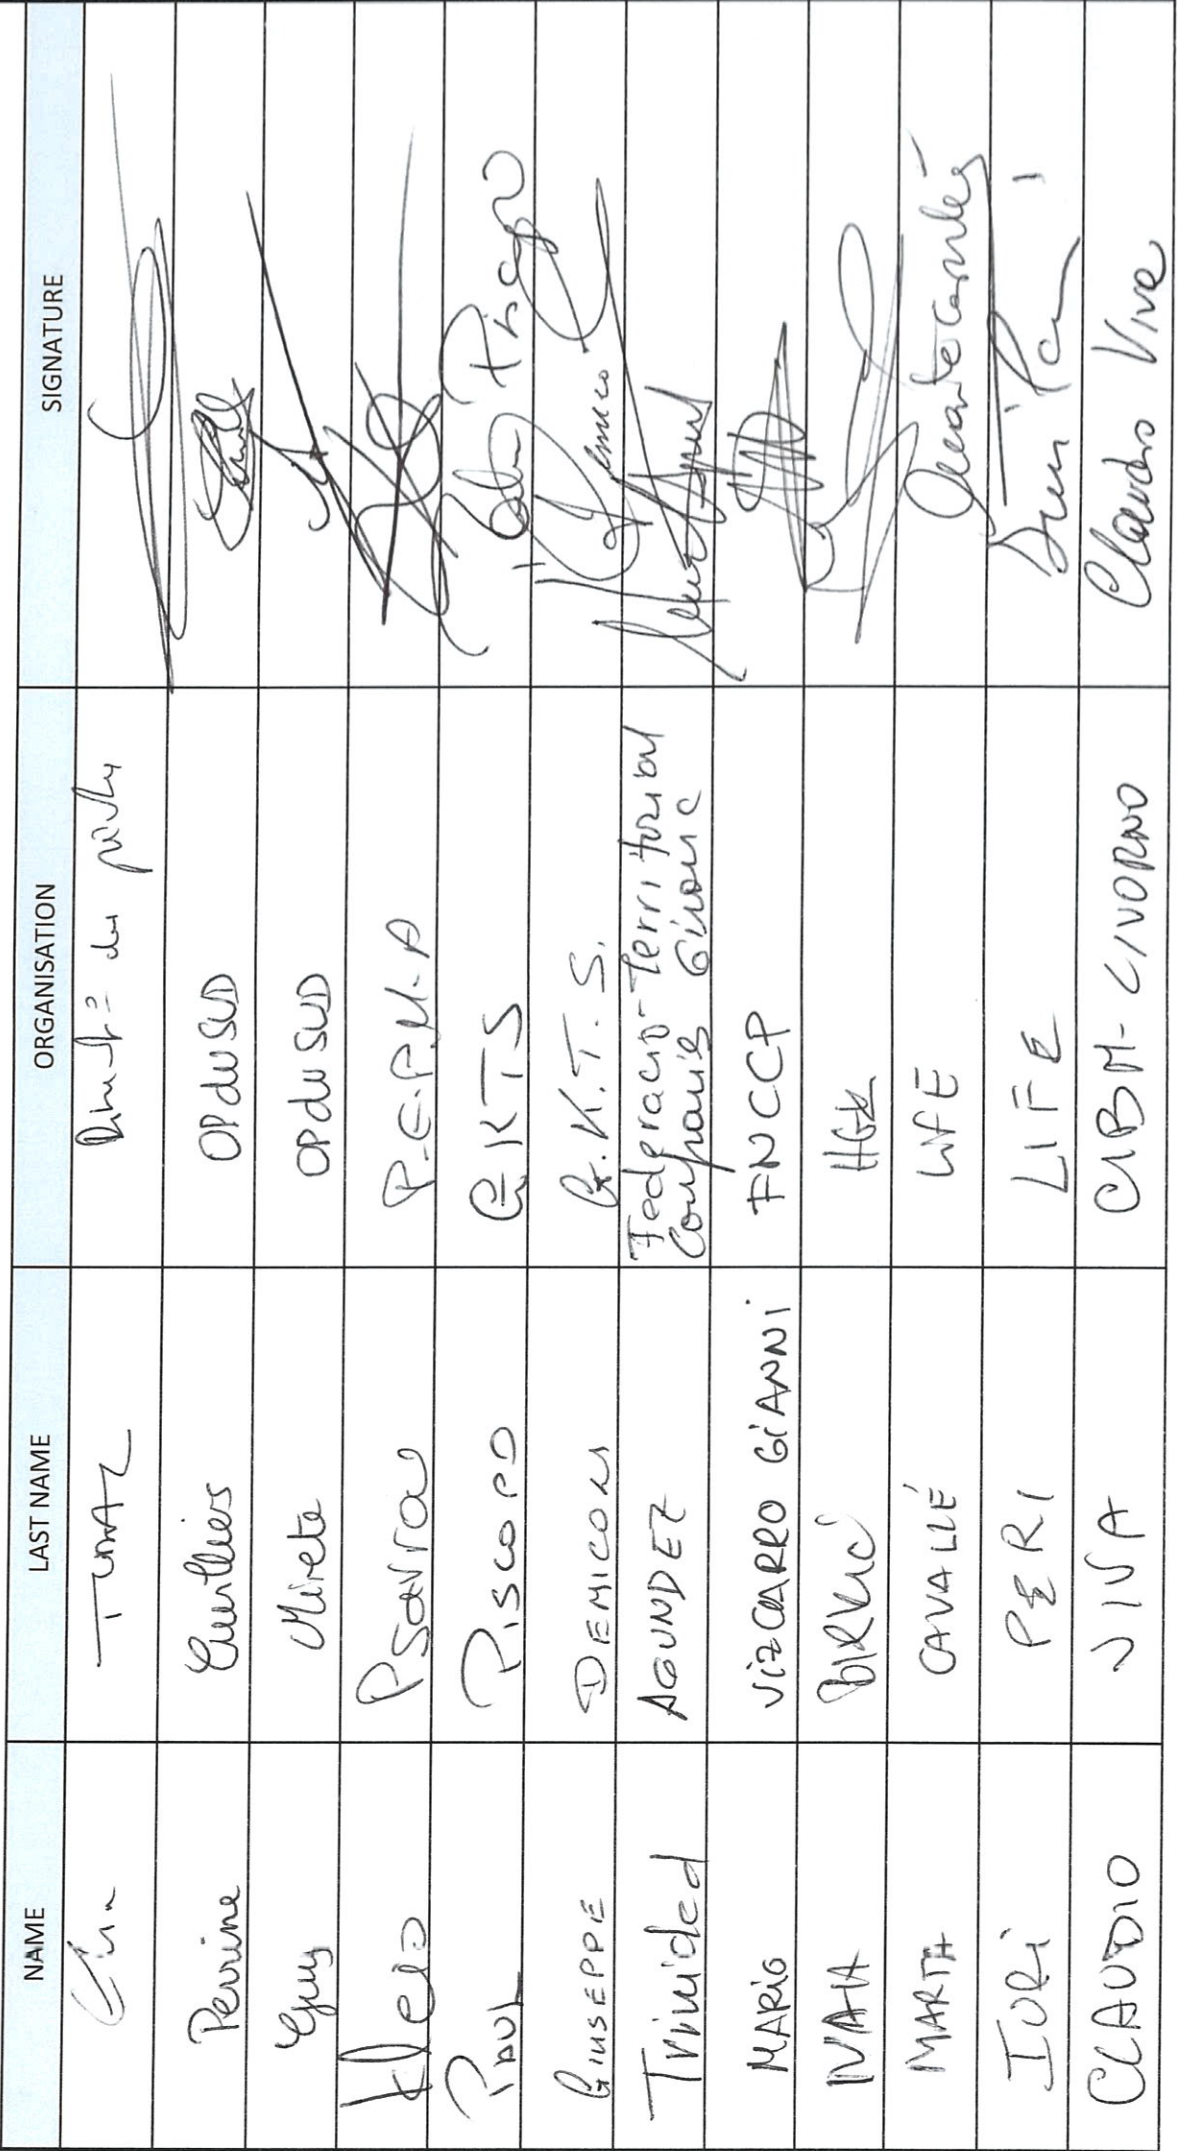 NAME LAST NAME ORGANISATION SIGNATURE
TUMAZ
Perrine Cuvilliers OP du SUD
Guy Mirete OP du SUD
Kleio Psarrou P.E.P.M.A
PAUL PISCOPO GKTS
GIUSEPPE DEMICOLI G.K.T.S.
Trinidad AGUNDEZ Federació Territorial
Confraries Girona
MARIO VIZCARRO GIANNI FNCCP
IVANA BIRKIĆ HGK
MARTA CAVALLÉ LIFE
IURI PERI LIFE
CLAUDIO VIVA CIBM-LIVORNO Claudio Viva